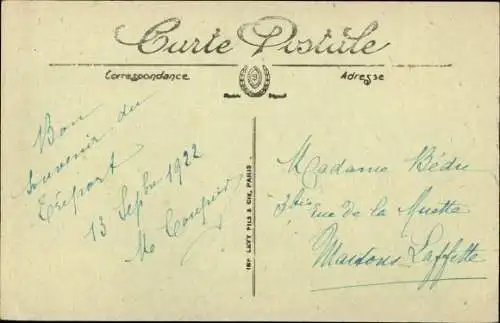 Carte Postale
Correspondance
Adresse
Bon
souvenir du
Tréport
13 Sepbre 1922
IMP. LEVY FILS & CIE, PARIS
Madame Bédu
3bis rue de la Muette
Maisons Laffitte